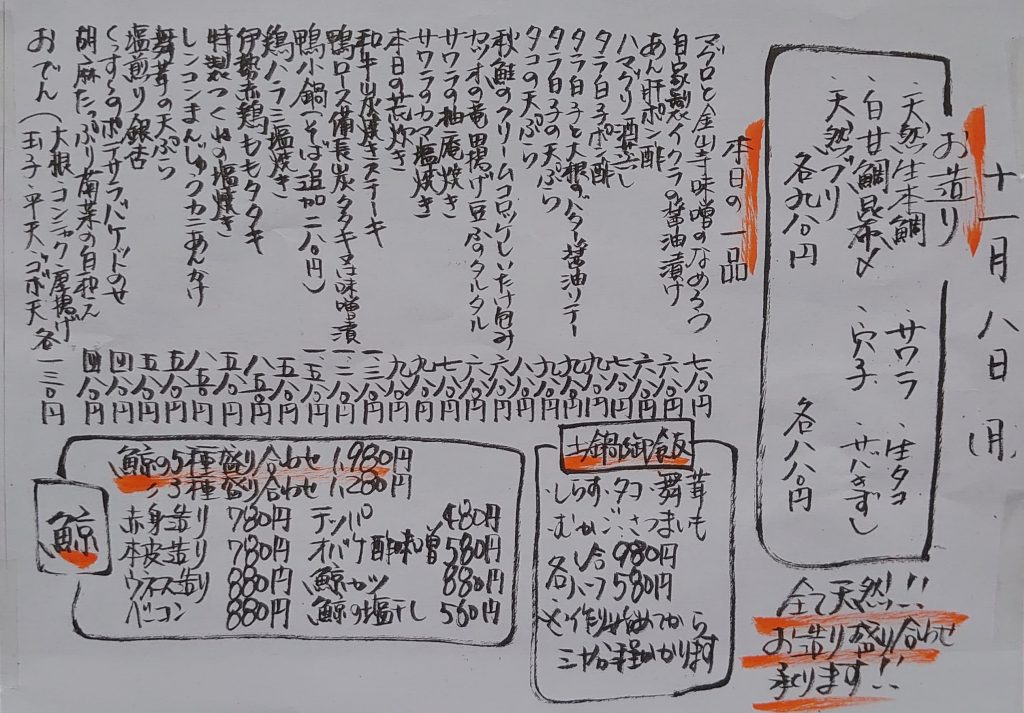 十一月八日(月)
お造り
・天然生本鯛
・白甘鯛昆布〆
・天然ブリ
各九八〇円
・サワラ
・生タコ
・穴子
各八八〇円
全て天然!!
お造り盛り合わせ
承ります!!
本日の一品
マグロと金山寺味噌のなめろう 七八〇円
自家製イクラの醤油漬け 六八〇円
あん肝ポン酢 六八〇円
ハマグリ酒蒸し 七八〇円
タラ白子ポン酢 九八〇円
タラ白子と大根のバター醤油ソテー 九八〇円
タラ白子の天ぷら 九八〇円
タコの天ぷら 八八〇円
秋鮭のクリームコロッケしいたけ包み
カツオの竜田揚げ豆ふのタルタル
サワラの柚庵焼き 七八〇円
サワラのカマ塩焼き
本日の荒炊き
和牛炭焼きステーキ
鴨ロース備長炭タタキ又は味噌漬
鴨小鍋(そば追加二八〇円)
鶏ハラミ塩焼き
伊勢赤鶏ももタタキ
特製つくねの塩焼き
レンコンまんじゅうカニあんかけ
舞茸の天ぷら
塩煎り銀杏
くんすモのポテサラバケットのせ 四八〇円
胡麻たっぷり菊菜の白和え 四八〇円
おでん(大根・コンニャク・厚揚げ
玉子・平天・ゴボ天 各一三〇円
土鍋御飯
・しらす・タコ・舞茸
・むかご・さつまいも
各 一合 980円
各 ハーフ 580円
※作り始めてから
三十分程かかります
鯨
鯨の5種盛り合わせ 1,980円
〃 3種盛り合わせ 1,280円
赤身造り 780円
本皮造り 780円
ウネス造り 880円
ベーコン 880円
テッパ 480円
オバケ酢味噌 580円
鯨カツ 880円
鯨の塩干し 560円